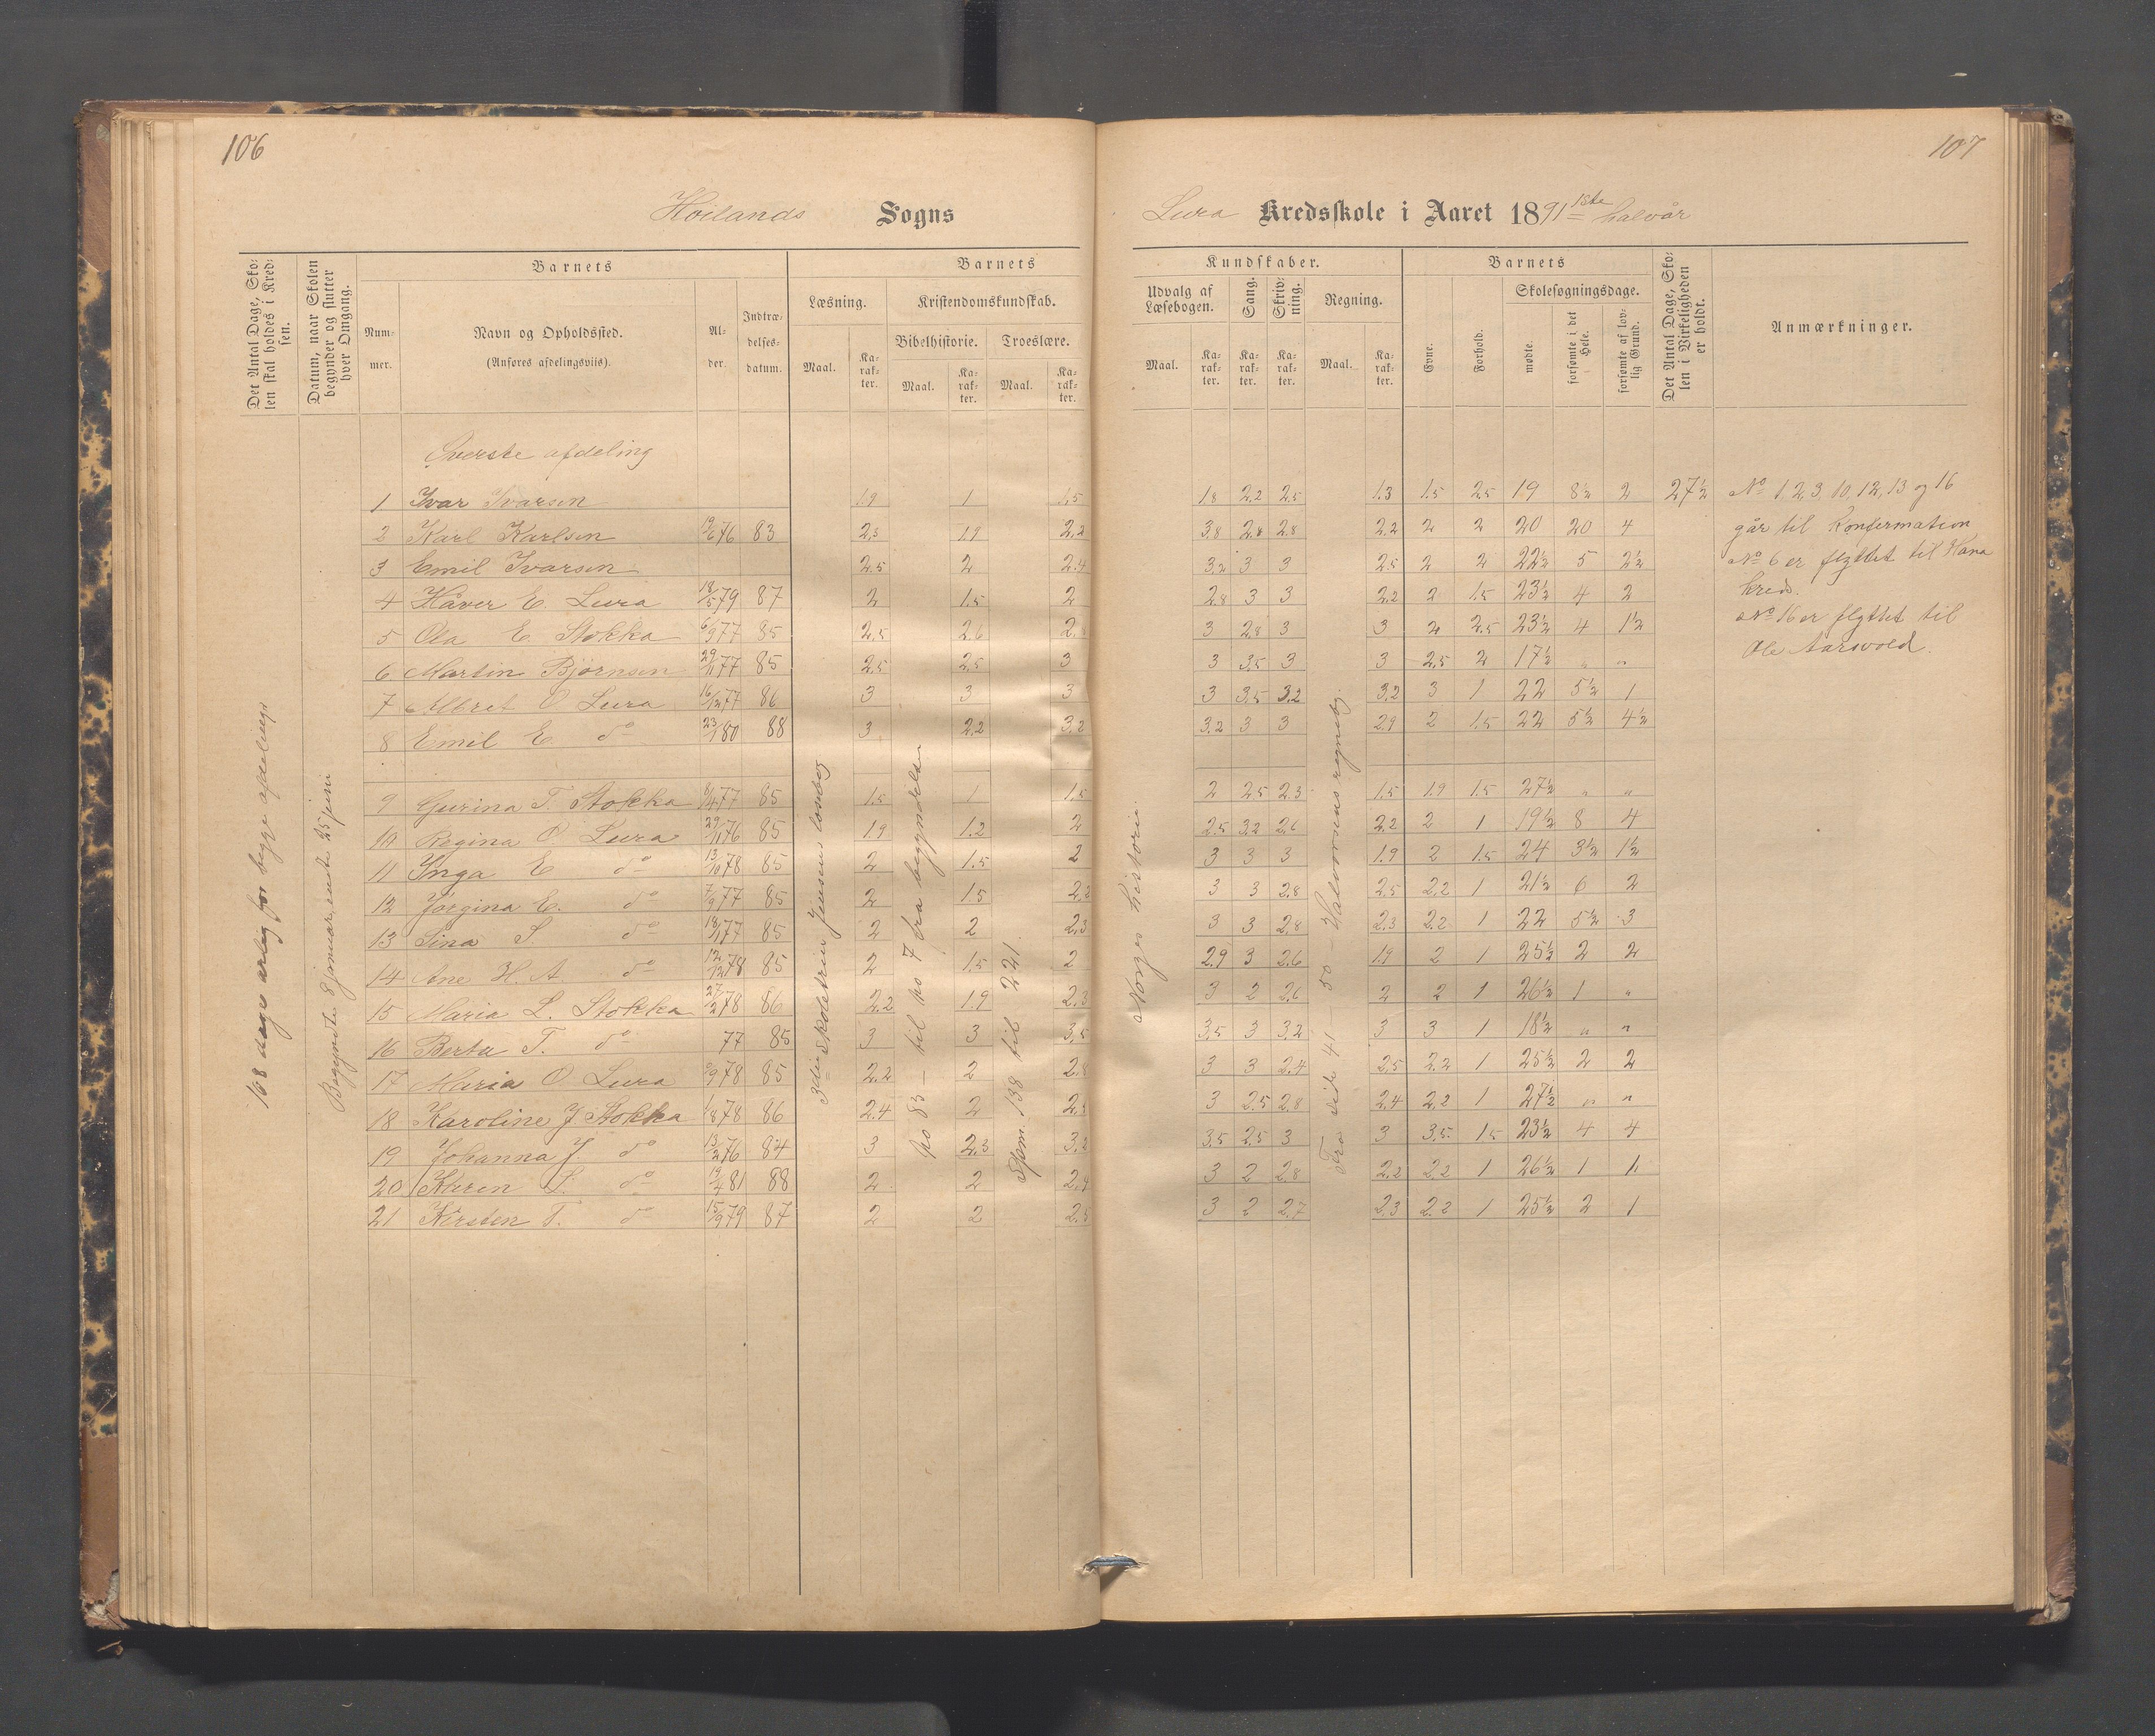 106
Høilands Sogns
Det Antal Dage, Sko-
len skal holdes i Kred-
sen.
Datum, naar Skolen
begynder og slutter
hver Omgang.
Barnets
Num-
mer.
Navn og Opholdssted.
(Anføres afdelingsviis).
Al-
der.
Indtræ-
delses-
datum.
Barnets
Læsning.
Kristendomskundskab.
Bibelhistorie.
Troeslære.
Maal.
Ka-
rak-
ter.
Maal.
Ka-
rak-
ter.
Maal.
Ka-
rak-
ter.
168 dage årlig for begge afdelinge
Begyndte 8 januar, endte 25 juni
3die skoletrin Jensens læsebog
no 83 – til no 7 fra begyndelsen
Spm. 138 til 221
Øverste afdeling
1 Ivar Ivarsen 1.9 1 1.5
2 Karl Karlsen 19/6 76 83 2,3 1.9 2,2
3 Emil Ivarsen 2.5 2 2.4
4 Håver E. Lura 18/5 79 87 2 1.5 2
5 Ola E. Stokka 6/9 77 85 2.5 2.6 2.
6 Martin Bjørnsen 29/11 77 85 2.5 2.5 3
7 Albret O Lura 16/12 77 86 3 3 3
8 Emil E. do 23/1 80 88 3 2.2 3.2
9 Gurina T. Stokka 8/4 77 85 1.5 1 1.5
10 Regina O Lura 29/11 76 85 1.9 1.2 2
11 Inga E do 13/10 78 85 2 1.5 2
12 Jorgina E. do 7/9 77 85 2 1.5 2,2
13 Sina S. do 18/1 77 85 2 2 2.3
14 Ane H. A. do 12/12 78 85 2 1.5 2
15 Maria L. Stokka 27/2 78 86 2.2 1.9 2.3
16 Berta T. do 77 85 3 3 3,5
17 Maria O. Lura 9 78 85 2.2 2 2.8
18 Karoline J. Stokka 1/8 78 86 2.4 2 2.
19 Johanna J do 13/2 76 84 3 2.3 3.2
20 Karen L. do 19/4 81 88 2 2 2.4
21 Kirsten T. do 15/9 79 87 2 2 2.5
107
Lura Kredsskole i Aaret 1891 1ste halvår
Kundskaber.
Udvalg af
Læsebogen.
Sang.
Skriv-
ning.
Regning.
Maal.
Ka-
rak-
ter.
Ka-
rak-
ter.
Ka-
rak-
ter.
Maal.
Ka-
rak-
ter.
Barnets
Evne.
Forhold.
Skolesøgningsdage.
mødte.
forsømte i det
Hele.
forsømte af lov-
lig Grund.
Det Antal Dage, Sko-
len i Virkeligheden
er holdt.
Anmærkninger.
Norges historie.
Fra side 41 – 50 – Halvorsens regnebog.
1.8 2.2 2.5 1.3 1.5 2.5 19 8½ 2 27½
3.8 2.8 2.8 2.2 2 2 20 20 4
3,2 3 3 2.5 2 2 22½ 5 2½
2.8 3 3 2.2 2 1.5 23½ 4 2
3 2.8 3 3 2 2.5 23½ 4 1½
3 3,5 3 3 2,5 2 17½ " "
3 3,5 3,2 3.2 3 1 22 5½ 1
3.2 3 3 2.9 2 1.5 22 5½ 4½
2 2.5 2.3 1.5 1.9 1.5 27½ " "
2.5 3.2 2.6 2.2 2 1 19½ 8 4
3 3 3 1.9 2 1.5 24 3½ 1½
3 3 2.8 2.5 2.2 1 21½ 6 2
3 3 2.8 2.3 2.2 1 22 5½ 3
2.9 3 2.6 1.9 2 1 25½ 2 2
3 2 2.6 2 2 1 26½ 1 "
3,5 3 3.2 3 3 1 18½ " "
3 3 2.4 2,5 2.2 1 25½ 2 2
3 2.5 2.8 2.4 2,2 1 27½ " "
3,5 2,5 3 3 3,5. 1.5 23½ 4 4
3 2 2.8 2.2 2,2 1 26½ 1 1
3 2 2.7 2.3 2.2 1 25½ 2 1
No 1, 2, 3, 10, 12, 13 og 16
går til Konfirmation
No 6 er flyttet til Hana
kreds.
No 16 er flyttet til
Ole Aarsvold.